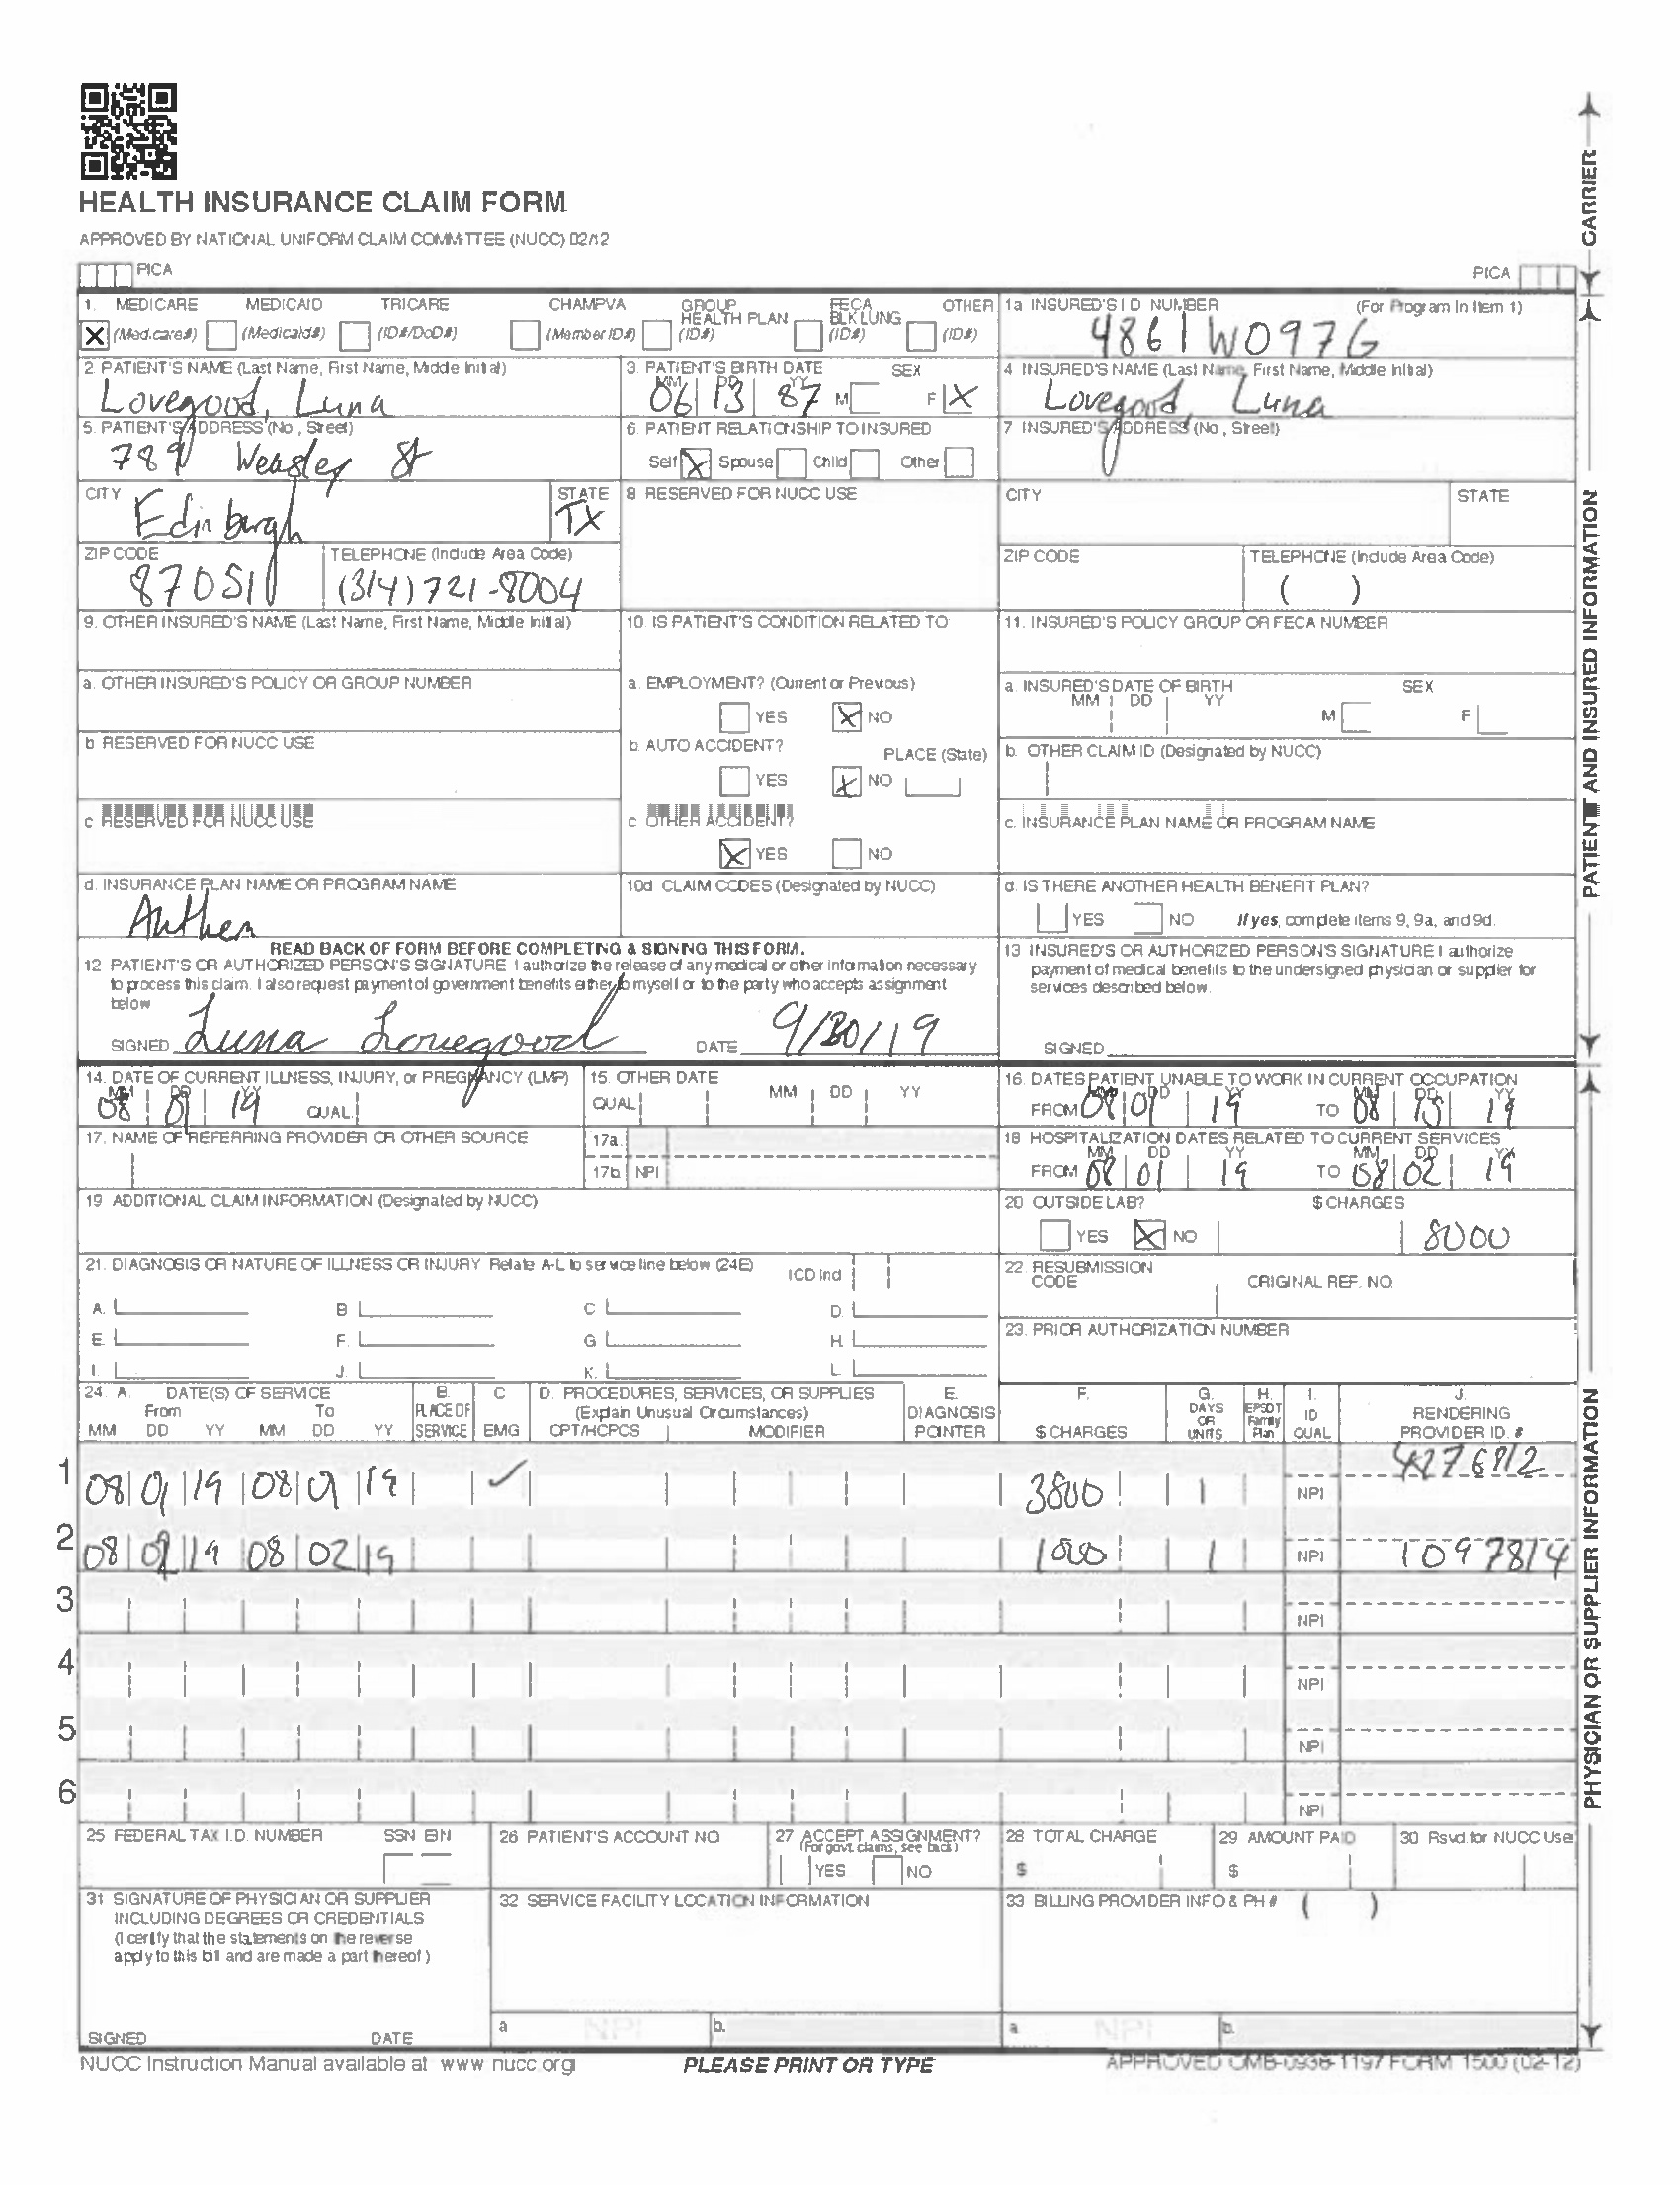 HEALTH INSURANCE CLAIM FORM
APPROVED BY NATIONAL UNIFORM CLAIM COMMITTEE (NUCC) 02/12
PICA PICA
CARRIER
1. MEDICARE MEDICAID TRICARE CHAMPVA GROUP HEALTH PLAN FECA BLK LUNG OTHER
X (Medicare#) (Medicaid#) (ID#/DoD#) (Member ID#) (ID#) (ID#) (ID#)
1a INSURED'S I D NUMBER (For Program In Item 1)
4861W097G
2. PATIENT'S NAME (Last Name, First Name, Middle Initial)
Lovegood, Luna
3. PATIENT'S BIRTH DATE SEX
MM DD YY
06 13 87 M F X
4 INSURED'S NAME (Last Name, First Name, Middle Initial)
Lovegood, Luna
5. PATIENT'S ADDRESS (No, Street)
789 Weasley St
6. PATIENT RELATIONSHIP TO INSURED
Self X Spouse Child Other
7 INSURED'S ADDRESS (No, Street)
CITY STATE
Edinburgh TX
8 RESERVED FOR NUCC USE
CITY STATE
ZIP CODE TELEPHONE (Include Area Code)
87051 (314) 721-8004
ZIP CODE TELEPHONE (Include Area Code)
( )
PATIENT AND INSURED INFORMATION
9. OTHER INSURED'S NAME (Last Name, First Name, Middle Initial)
10. IS PATIENT'S CONDITION RELATED TO
11. INSURED'S POLICY GROUP OR FECA NUMBER
a. OTHER INSURED'S POLICY OR GROUP NUMBER
a. EMPLOYMENT? (Current or Previous)
YES X NO
a. INSURED'S DATE OF BIRTH SEX
MM DD YY M F
b RESERVED FOR NUCC USE
b. AUTO ACCIDENT? PLACE (State)
YES X NO
b. OTHER CLAIM ID (Designated by NUCC)
c RESERVED FOR NUCC USE
c OTHER ACCIDENT?
X YES NO
c. INSURANCE PLAN NAME OR PROGRAM NAME
d. INSURANCE PLAN NAME OR PROGRAM NAME
Anthem
10d CLAIM CODES (Designated by NUCC)
d. IS THERE ANOTHER HEALTH BENEFIT PLAN?
YES NO If yes, complete items 9, 9a, and 9d.
READ BACK OF FORM BEFORE COMPLETING & SIGNING THIS FORM.
12 PATIENT'S OR AUTHORIZED PERSON'S SIGNATURE I authorize the release of any medical or other information necessary
to process this claim. I also request payment of government benefits either to myself or to the party who accepts assignment
below
SIGNED Luna Lovegood DATE 9/30/19
13 INSURED'S OR AUTHORIZED PERSON'S SIGNATURE I authorize
payment of medical benefits to the undersigned physician or supplier for
services described below.
SIGNED
14. DATE OF CURRENT ILLNESS, INJURY, or PREGNANCY (LMP)
MM DD YY
08 01 19 QUAL.
15. OTHER DATE
QUAL. MM DD YY
16. DATES PATIENT UNABLE TO WORK IN CURRENT OCCUPATION
MM DD YY MM DD YY
FROM 08 01 19 TO 08 15 19
17. NAME OF REFERRING PROVIDER OR OTHER SOURCE
17a.
17b NPI
18 HOSPITALIZATION DATES RELATED TO CURRENT SERVICES
MM DD YY MM DD YY
FROM 08 01 19 TO 08 02 19
19 ADDITIONAL CLAIM INFORMATION (Designated by NUCC)
20 OUTSIDE LAB? $ CHARGES
YES X NO 8000
21. DIAGNOSIS OR NATURE OF ILLNESS OR INJURY Relate A-L to service line below (24E) ICD Ind
A. B C D.
E. F. G H.
I. J. K. L.
22. RESUBMISSION CODE ORIGINAL REF. NO.
23. PRIOR AUTHORIZATION NUMBER
24. A. DATE(S) OF SERVICE B. C D. PROCEDURES, SERVICES, OR SUPPLIES E. F. G. H. I. J.
From To PLACE OF (Explain Unusual Circumstances) DIAGNOSIS DAYS OR EPSDT Family ID RENDERING
MM DD YY MM DD YY SERVICE EMG CPT/HCPCS MODIFIER POINTER $ CHARGES UNITS Plan QUAL. PROVIDER ID. #
1 08 01 19 08 01 19 ✓ 3800 1 NPI 4276812
2 08 02 19 08 02 19 1000 1 NPI 1097814
3 NPI
4 NPI
5 NPI
6 NPI
PHYSICIAN OR SUPPLIER INFORMATION
25 FEDERAL TAX I.D. NUMBER SSN EIN
26 PATIENT'S ACCOUNT NO.
27 ACCEPT ASSIGNMENT?
(For govt. claims, see back)
YES NO
28 TOTAL CHARGE
$
29 AMOUNT PAID
$
30 Rsvd. for NUCC Use
31 SIGNATURE OF PHYSICIAN OR SUPPLIER
INCLUDING DEGREES OR CREDENTIALS
(I certify that the statements on the reverse
apply to this bill and are made a part thereof.)
SIGNED DATE
32 SERVICE FACILITY LOCATION INFORMATION
a NPI b.
33 BILLING PROVIDER INFO & PH # ( )
a NPI b.
NUCC Instruction Manual available at www nucc.org
PLEASE PRINT OR TYPE
APPROVED OMB-0938-1197 FORM 1500 (02-12)